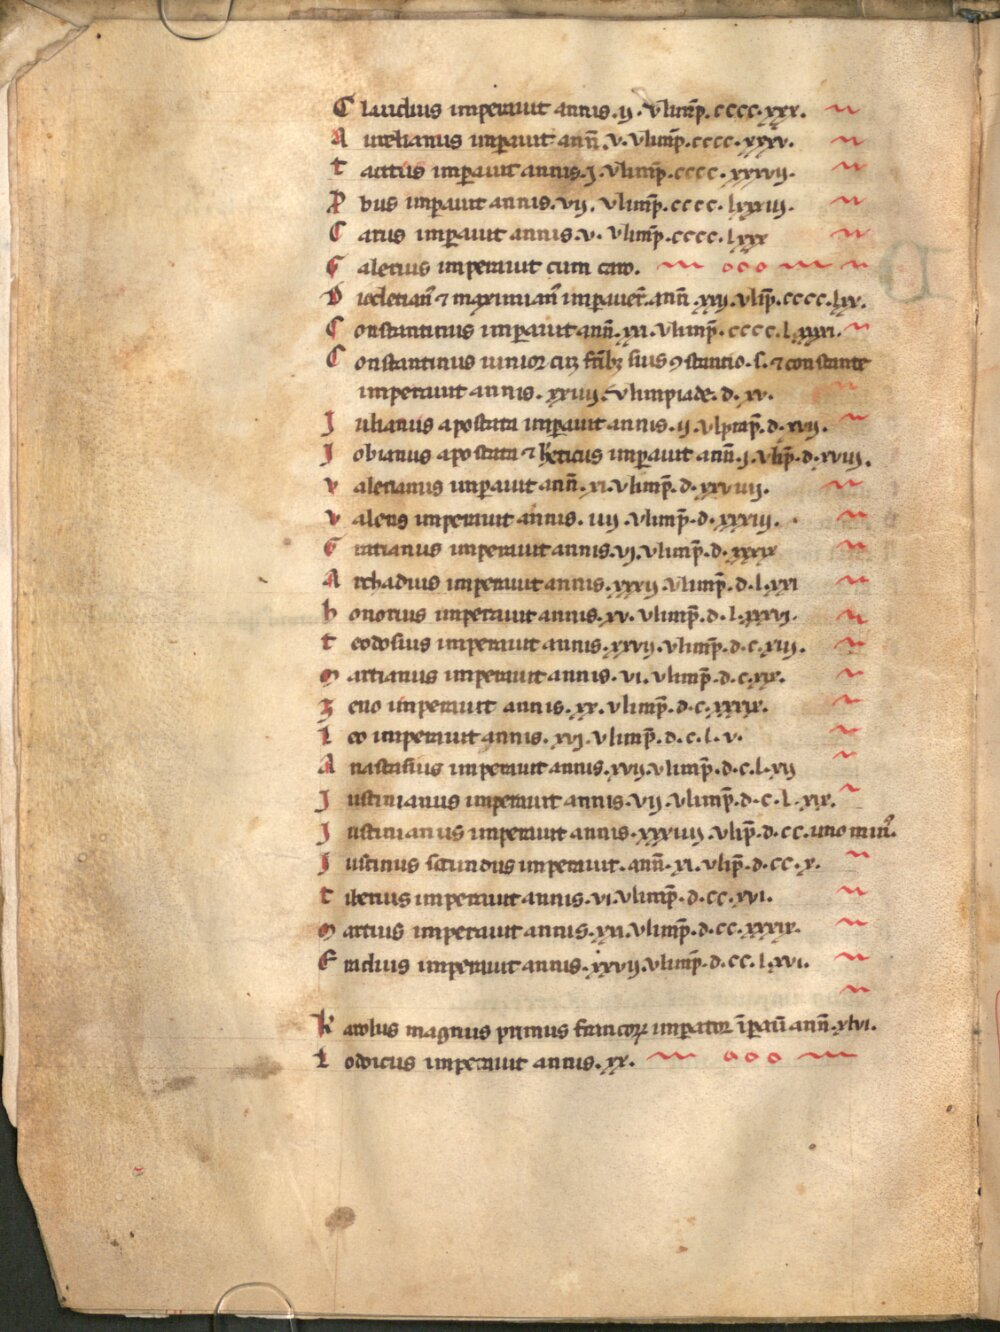 Claudius imperauit annis .ij. Vlimp̄. cccc. xxx.
Aurelianus imꝑauit ann̄. v. Vlimp̄. cccc. xxxv.
tacitus imꝑauit annis. j. Vlimp̄. cccc. xxxvij.
Pbus imꝑauit annis. vij. Vlimp̄. cccc. lxxiij.
Carus imꝑauit annis. v. Vlimp̄. cccc. lxxx
Galerius imperauit cum caro.
Diocletian᾽ ⁊ maximian᾽ imꝑauer̄. ann̄. xxij. vlip̄. cccc. lxv.
Constantinus imꝑauit ann̄. xxi. Vlimp̄. cccc. l. xxxi.
Constantinus iunior cū fr̄ibꝫ suis ꝯstancio. s. ⁊ constante
imperauit annis. xxiiij. Vlimpiade. d. xv.
Julianus apostata imꝑauit annis. ij. Vlpimp̄. d. xvij.
Jobianus apostata ⁊ heticus imꝑauit ann̄. j. vlip̄. d. xviij.
valerianus imꝑauit ann̄. xi. vlimp̄. d. xxviiij.
valens imperauit annis. iiij. vlimp̄. d. xxxiij.
Gratianus imperauit annis. vj. vlimp̄. d. xxxix
Archadius imperauit annis. xxxij. vlimp̄. d. l. xxi
honorius imperauit annis. xv. vlimp̄. d. l. xxxvj.
teodosius imperauit annis. xxvij. vlimp̄. d. c. xiij.
martianus imperauit annis. vi. vlimp̄. d. c. xix.
zeno imperauit annis. xx. vlimp̄. d. c. xxxix.
leo imperauit annis. xvj. vlimp̄. d. c. l. v.
Anastasius imperauit annis. xvij. vlimp̄. d. c. l. xij
Justinianus imperauit annis. vij. vlimp̄. d. c. l. xix.
Justinianus imperauit annis. xxxiiij. vlip̄. d. cc. uno min᾽.
Justinus secundus imperauit. ann̄. xi. vlip̄. d. cc. x.
tiberius imperauit annis. vi. vlimp̄. d. cc. xvi.
martius imperauit annis. xxi. vlimp̄. d. cc. xxxix.
Eraclius imperauit annis. xxvij. vlimp̄. d. cc. l. xvi.
Karolus magnus primus francoꝝ imꝑator īꝑauit ann̄. xlvi.
Lodoicus imperauit annis. xx.